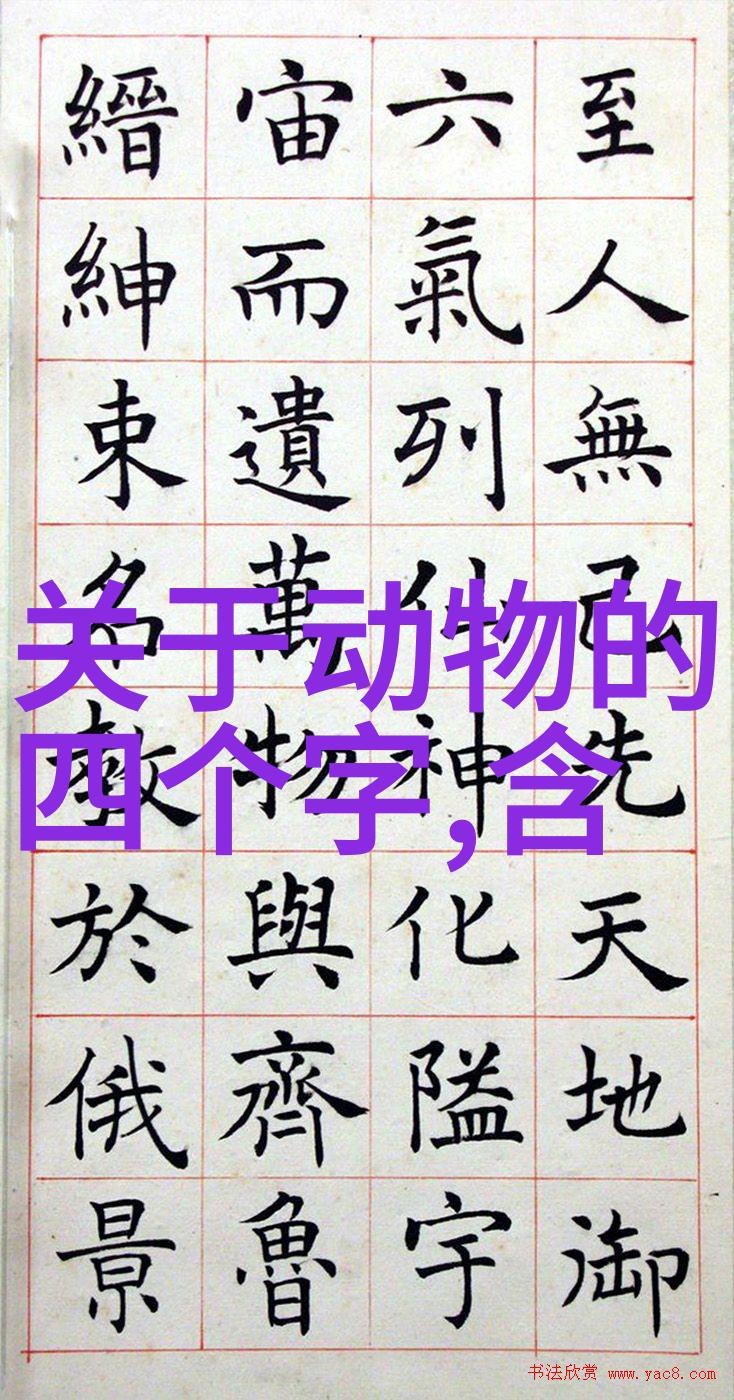 至人無己先天地御
六氣列仙神化隘宇
宙而遺萬物與齊魯
縉紳束名教於俄景
关于动物的
四个字,含
书法欣赏 www.yac8.com